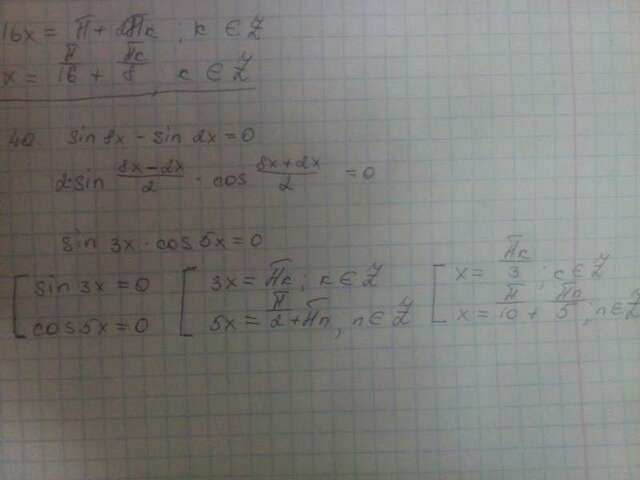 16x = π + 2πk ; k ∈ Z
x = π/16 + πk/8 k ∈ Z
40. sin 8x - sin 2x = 0
2·sin (8x-2x)/2 · cos (8x+2x)/2 = 0
sin 3x · cos 5x = 0
[ sin 3x = 0 [ 3x = πk ; k ∈ Z [ x = πk/3 ; k ∈ Z
cos 5x = 0 5x = π/2 + πn, n ∈ Z x = π/10 + πn/5 ; n ∈ Z